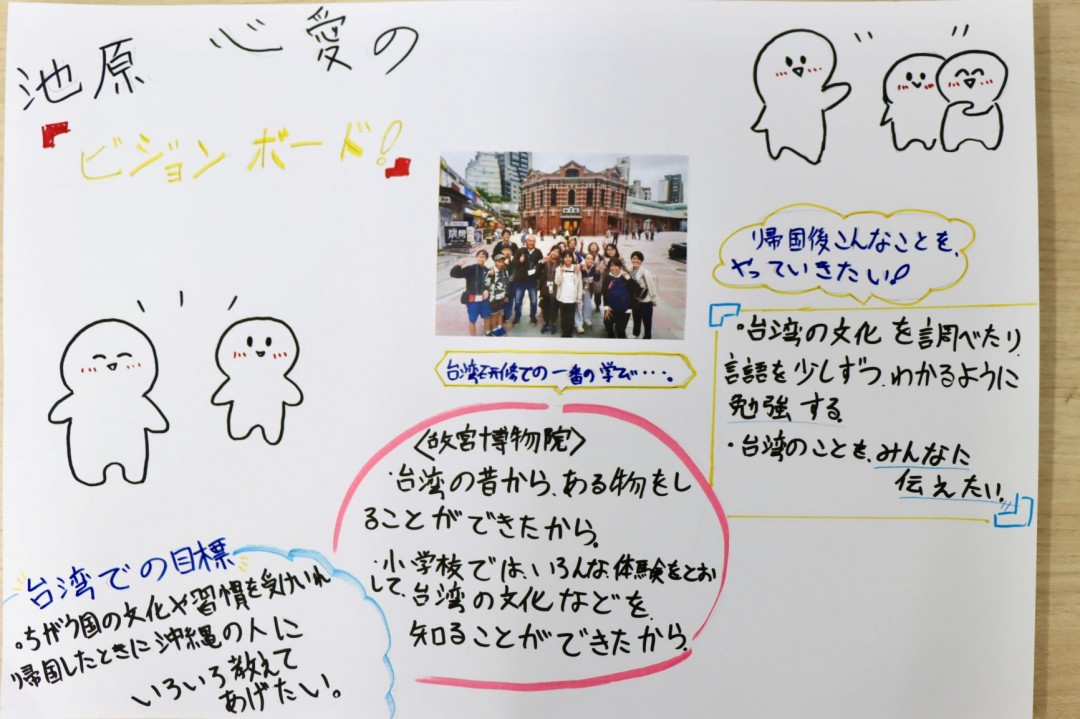 池原 心愛の
『ビジョンボード!』
台湾研修での一番の学び・・・。
〈故宮博物院〉
・台湾の昔から、ある物をし
ることができたから。
・小学校では、いろんな体験をとお
して、台湾の文化などを、
知ることができたから。
帰国後こんなことを、
やっていきたい!
・台湾の文化を調べたり、
言語を少しずつ、わかるように
勉強する。
・台湾のことを、みんなに
伝えたい。
台湾での目標
・ちがう国の文化や習慣を受けいれ
帰国したときに沖縄の人に
いろいろ教えて
あげたい。